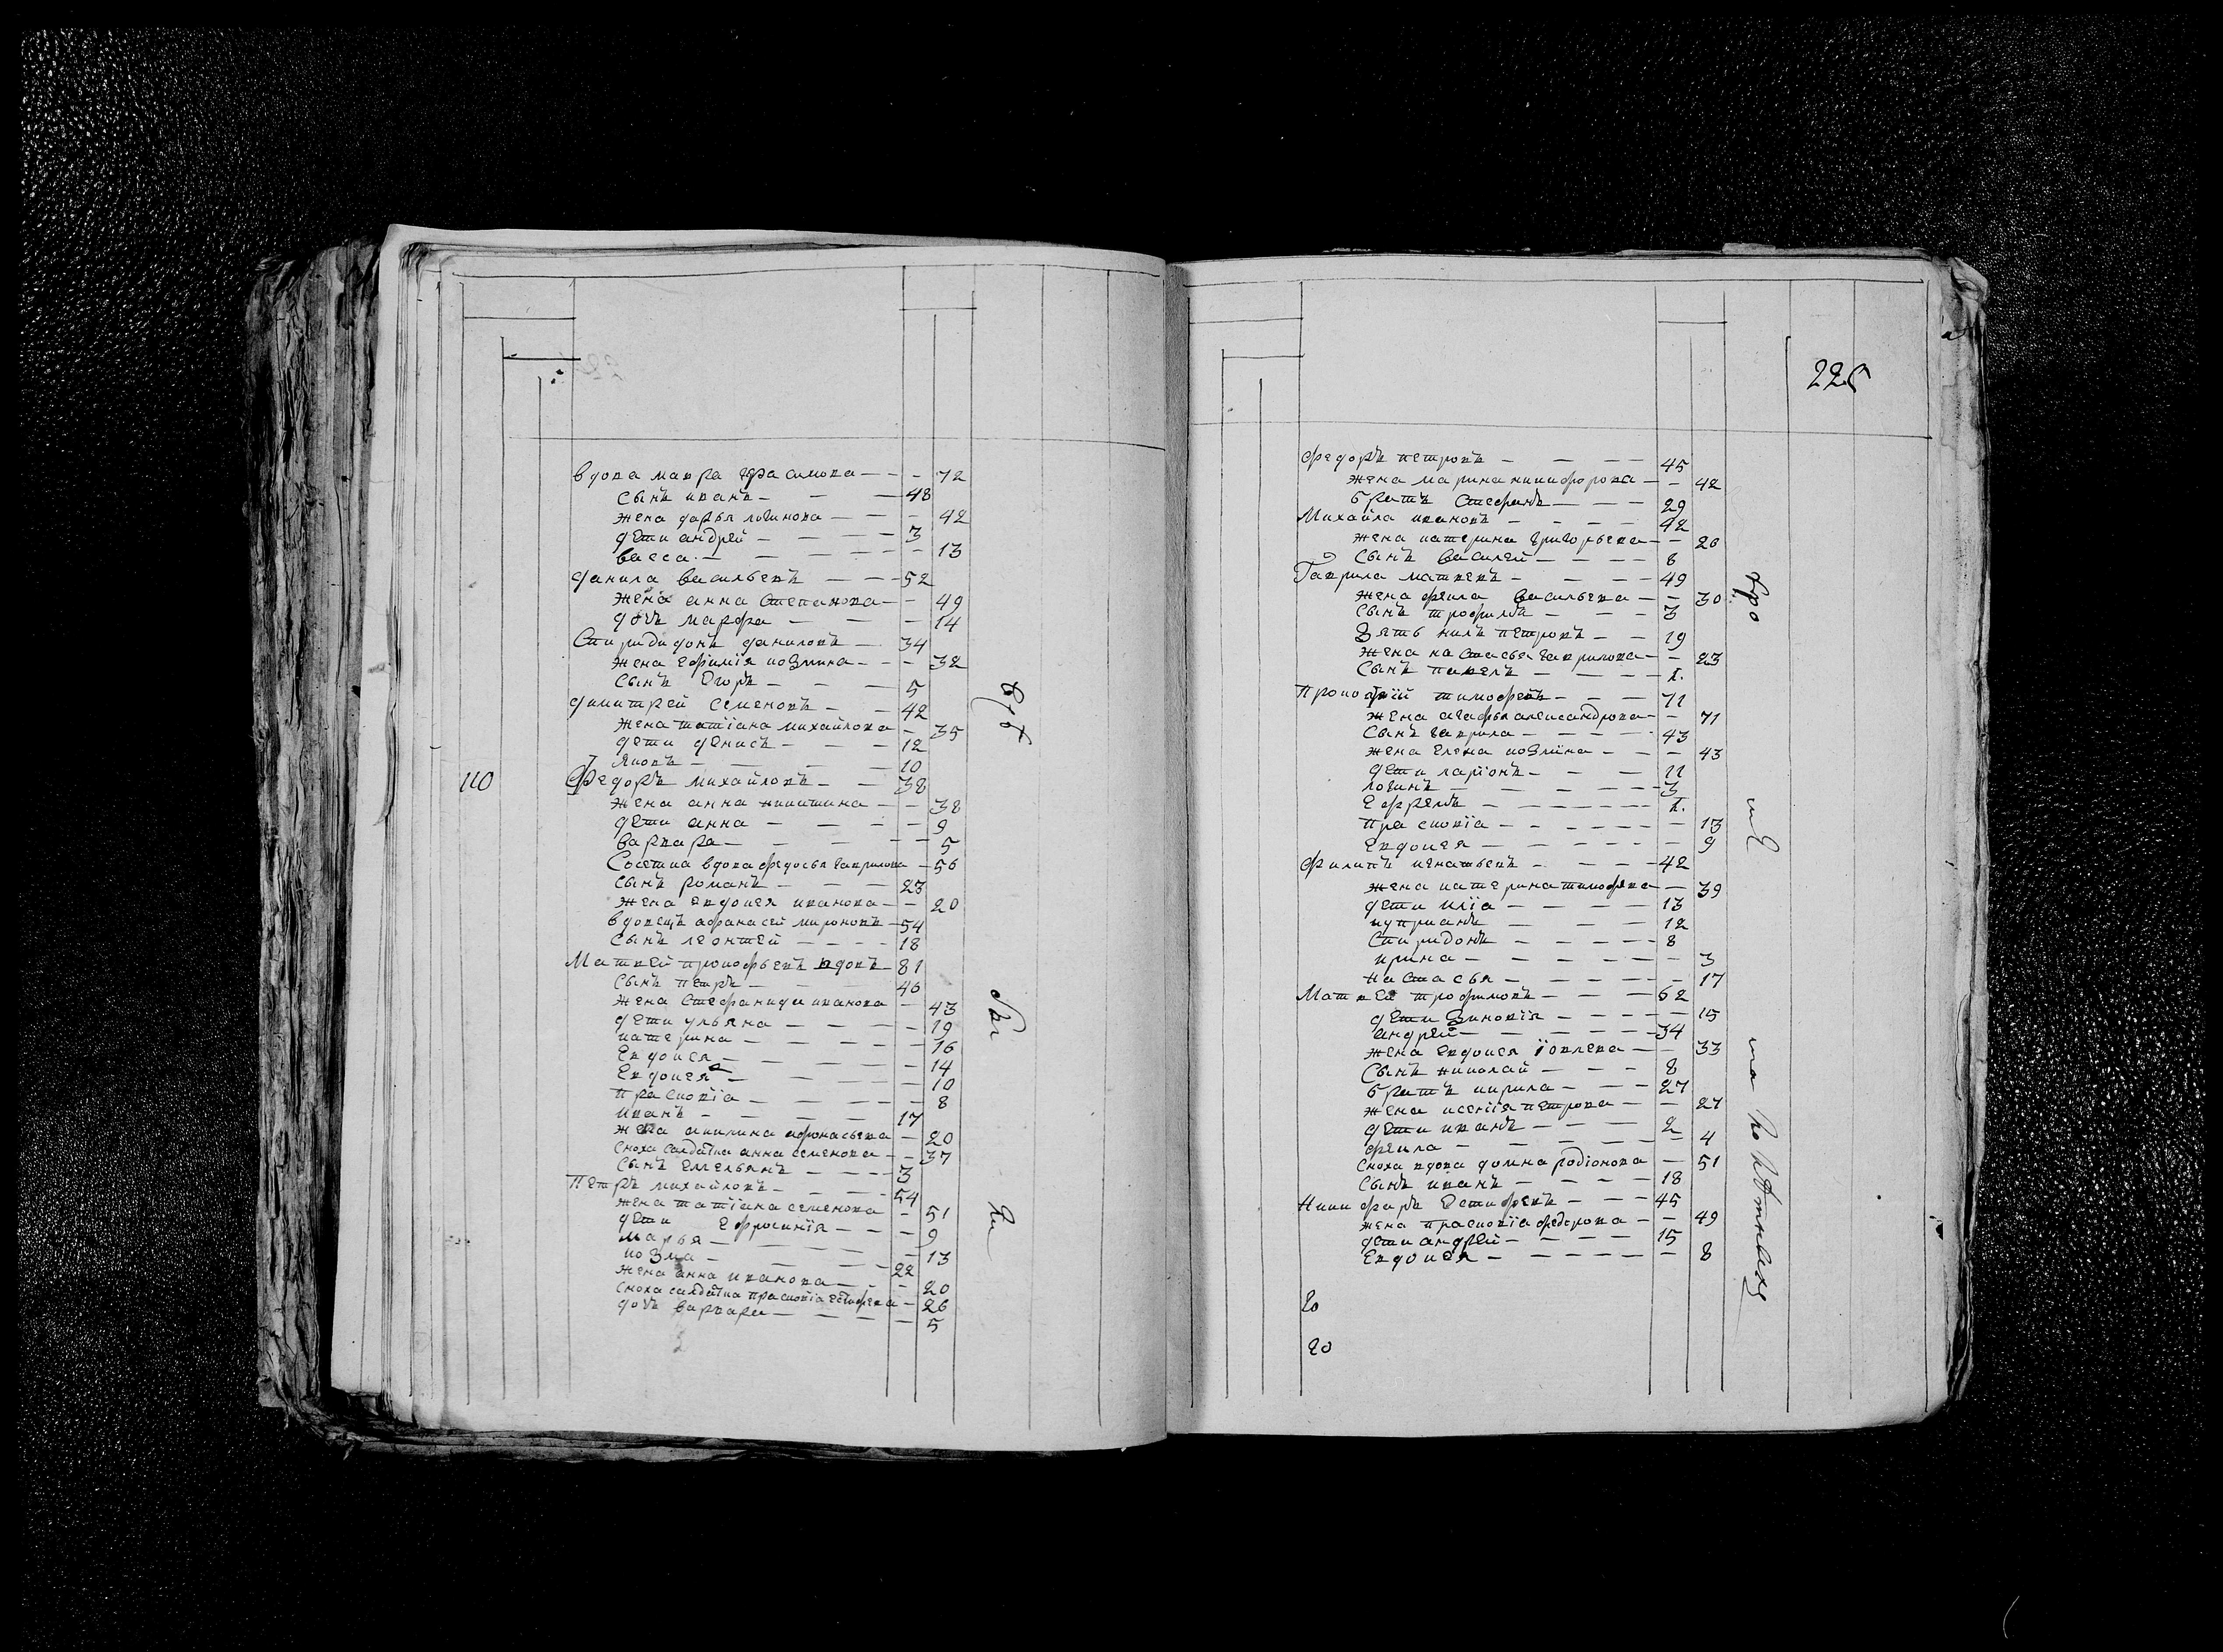 вдова мавра герасимова — — — 72
сынъ иванъ — — — 48
жена дарья логинова — — — 42
дети андрей — — — — 3
васса — — — — — — 13
данила васильевъ — — — 52
жена анна степанова — — 49
дочь марфа — — — — 14
Спиридидонъ даниловъ — 34
жена ефимія козмина — — — 32
сынъ Егоръ — — — 5
димитрей семеновъ — — 42
жена татіана михайлова — 35
дети денисъ — — — 12
Яковъ — — — — 10
110 Федоръ михайловъ — — 38
жена анна никитина — — 38
дети анна — — — — 9
варвара — — — — — 5
Соситка вдова федосья гаврилова — 56
сынъ романъ — — — 23
жена евдокея иванова — — 20
вдовецъ афанасей мироновъ — 54
сынъ леонтей — — — — 18
Матвей прокофьевъ вдовъ — 81
сынъ петръ — — — — 46
жена Стефанида иванова — 43
дети ульяна — — — — — 19
катерина — — — — — 16
Евдокея — — — — — 14
Евдокея — — — — — 10
прасковіа — — — — — 8
иванъ — — — — — 17
жена акилина афонасьева — 20
сноха салдатка анна семенова — — 37
сынъ Емельянъ — — — — 3
Петръ михайловъ — — — — 54
жена татіана семенова — 51
дети Ефросинія — — — 9
марья — — — — 13
козма — — — — — 22
жена анна иванова — — — 20
сноха салдатка прасковіа евстифеева — 26
дочь варвара — — — — 5
225
федоръ петровъ — — — — 45
жена марина никифорова — — 42
братъ Стефанъ — — — 29
Михайла ивановъ — — — — 42
жена катерина григорьева — — 26
сынъ василей — — — — 8
Гаврила матвеевъ — — — — 49
жена фекла васильева — — 30
сынъ трофимъ — — — 3
Зять нилъ петровъ — — 19
жена настасья гаврилова — — 23
сынъ павелъ — — — — 1.
прокофій тимофеевъ — — — 71
жена агафья александрова — — 71
сынъ гаврила — — — — 43
жена елена козмина — — — 43
дети ларіонъ — — — 11
логинъ — — — — — — 3
Ефремъ — — — — — — 1.
прасковіа — — — — — — — 13
Евдокея — — — — — — 9
филипъ игнатьевъ — — — — 42
жена катерина тимофеева — — 39
дети иліа — — — — 13
куприанъ — — — 12
Спиридонъ — — — — — 8
ирина — — — — — — 3
настасья — — — — — — 17
Матвей трофимовъ — — — — 62
дети Зиновія — — — — — — 15
андрей — — — — — — 34
жена евдокея іовлева — — 33
сынъ николай — — — 8
братъ кирила — — — — 27
жена ксенія петрова — — — 27
дети иванъ — — — — 2
фекла — — — — — — — 4
сноха вдова домна родіонова — 51
сынъ иванъ — — — — 18
Никифоръ Естифеевъ — — — 45
жена прасковіа федорова — — 49
дети андрей — — — — 15
Евдокея — — — — — — — 8